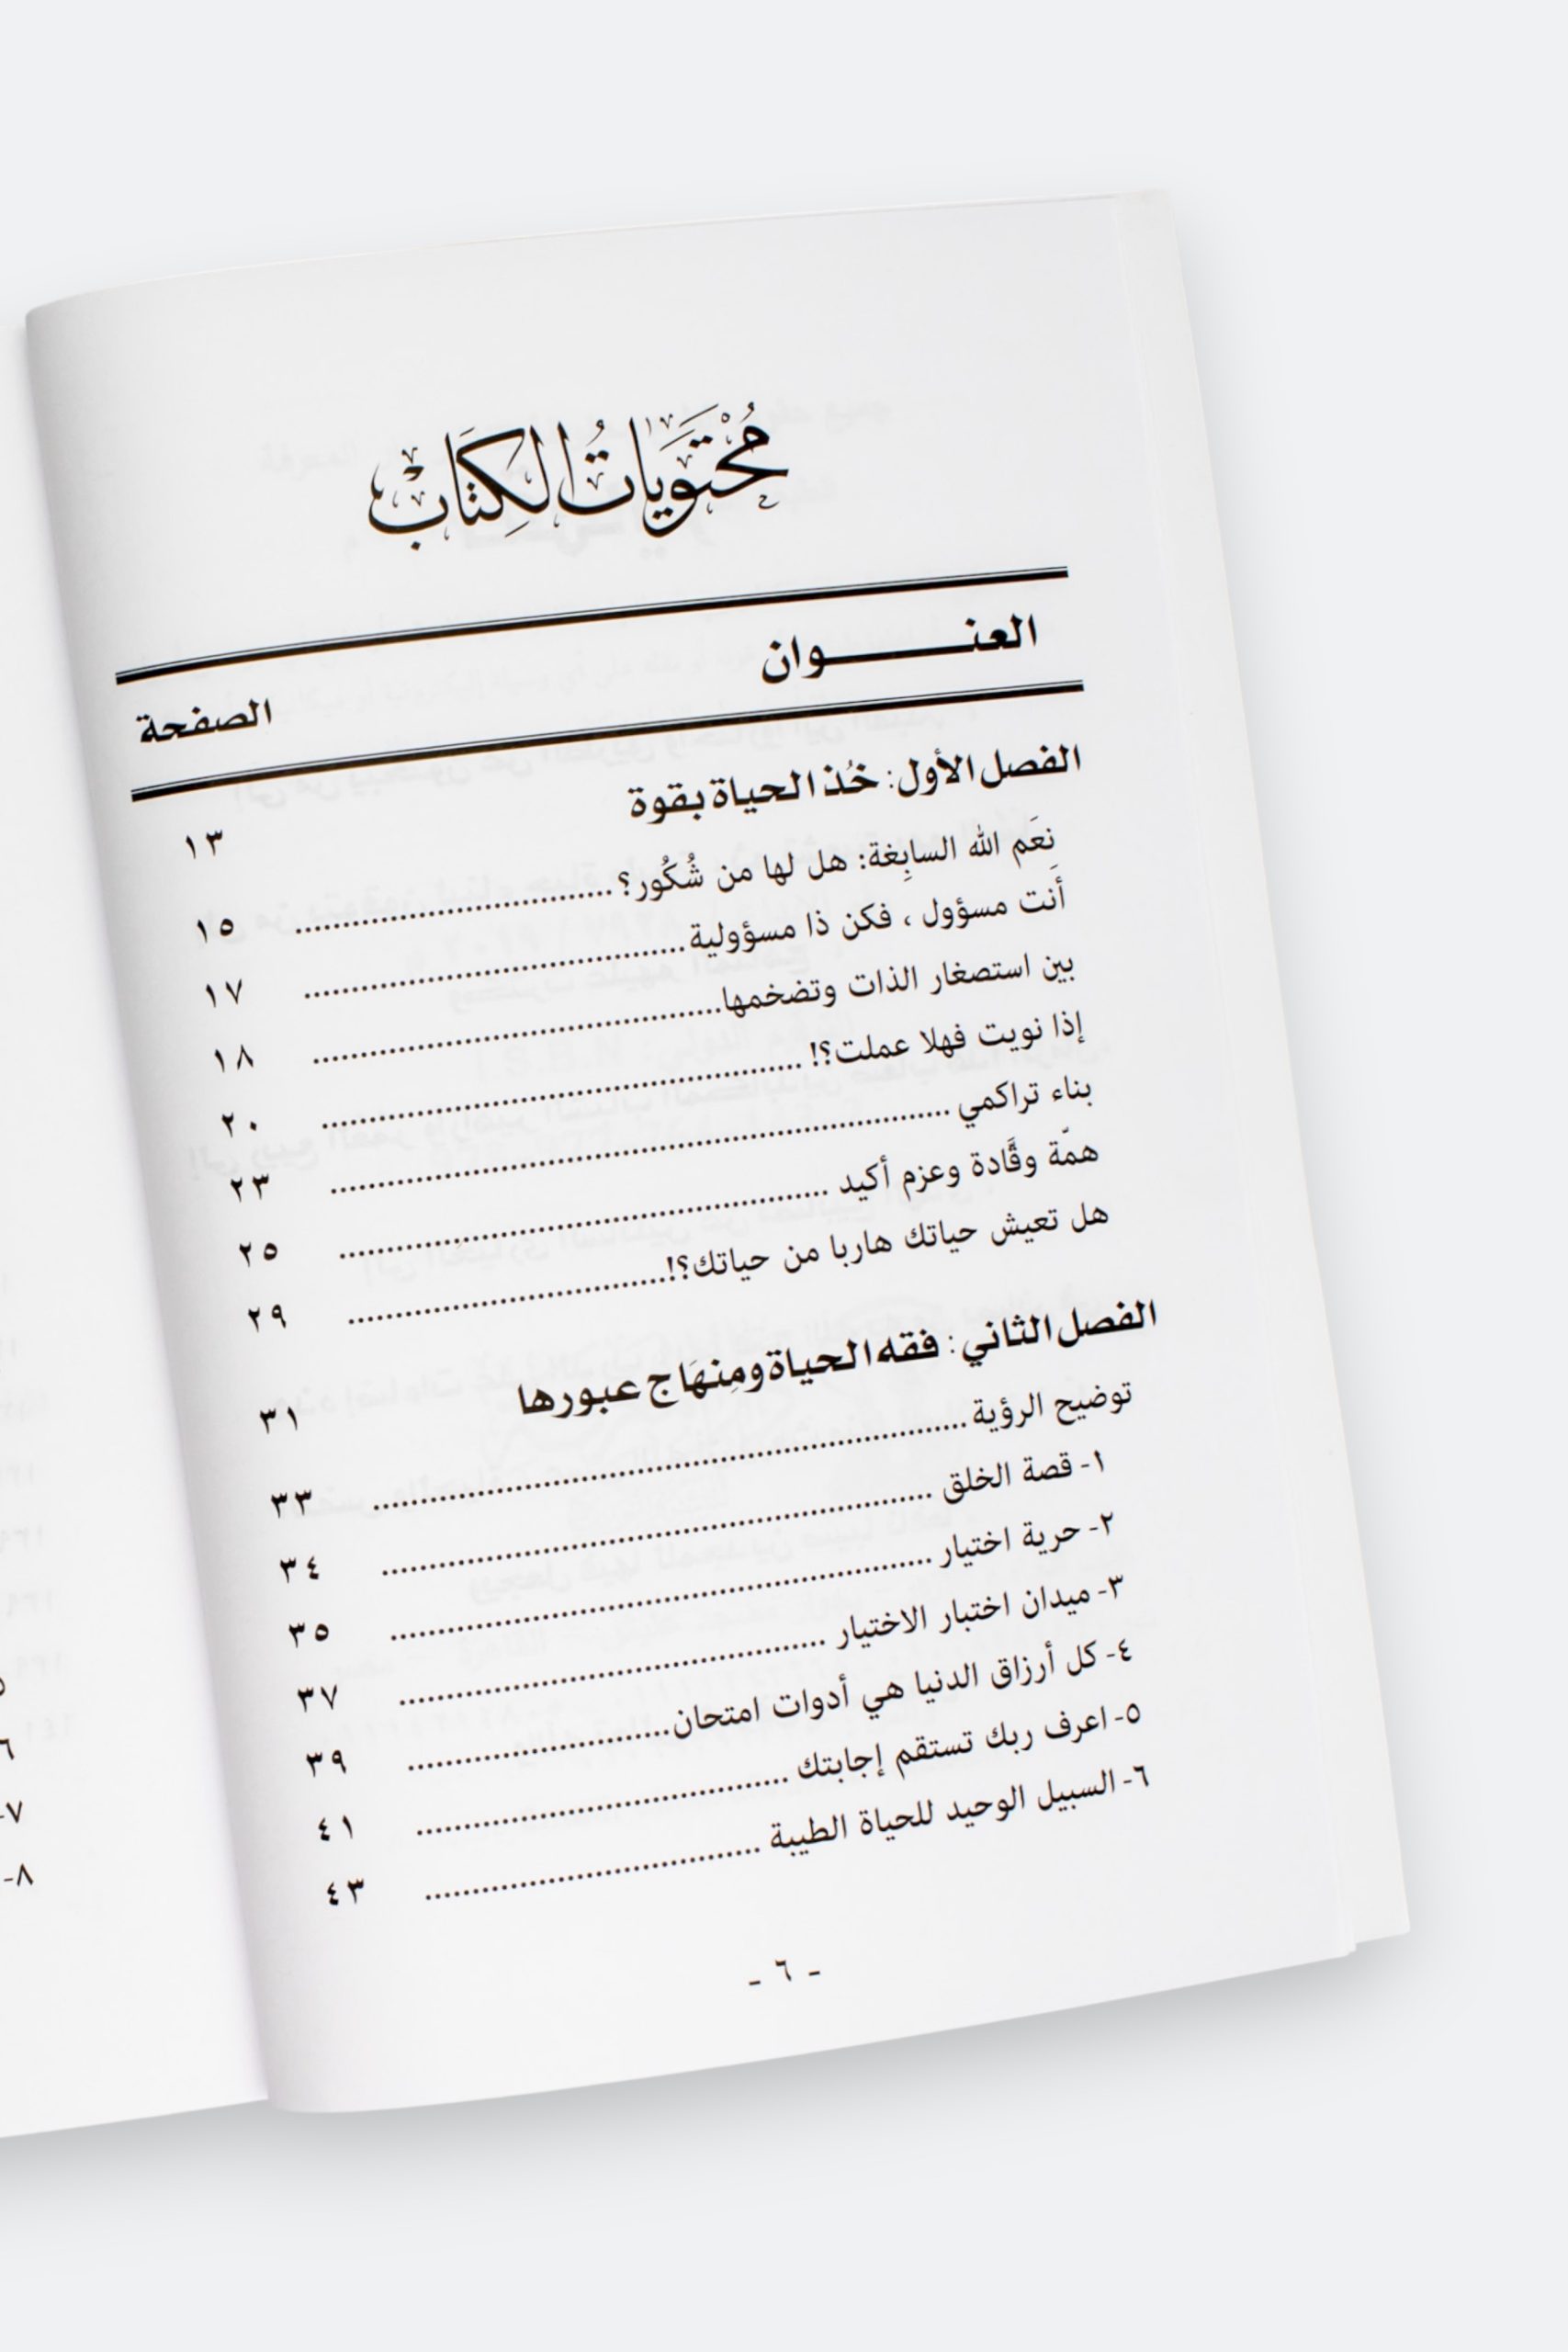 مُحْتَوَيَاتُ الكِتَابْ
العنـــــــوان
الصفحة
الفصل الأول: خُذ الحياة بقوة
١٣
نِعَم الله السابِغة: هل لها من شُكُور؟ ١٥
أنت مسؤول ، فكن ذا مسؤولية ١٧
بين استصغار الذات وتضخمها ١٨
إذا نويت فهلا عملت؟! ٢٠
بناء تراكمي ٢٣
همّة وقَّادة وعزم أكيد ٢٥
هل تعيش حياتك هاربا من حياتك؟! ٢٩
الفصل الثاني: فقه الحياة ومِنهَاج عبورها
٣١
توضيح الرؤية ٣٣
١- قصة الخلق ٣٤
٢- حرية اختيار ٣٥
٣- ميدان اختبار الاختيار ٣٧
٤- كل أرزاق الدنيا هي أدوات امتحان ٣٩
٥- اعرف ربك تستقم إجابتك ٤١
٦- السبيل الوحيد للحياة الطيبة ٤٣
- ٦ -
٦
٧-
٨-